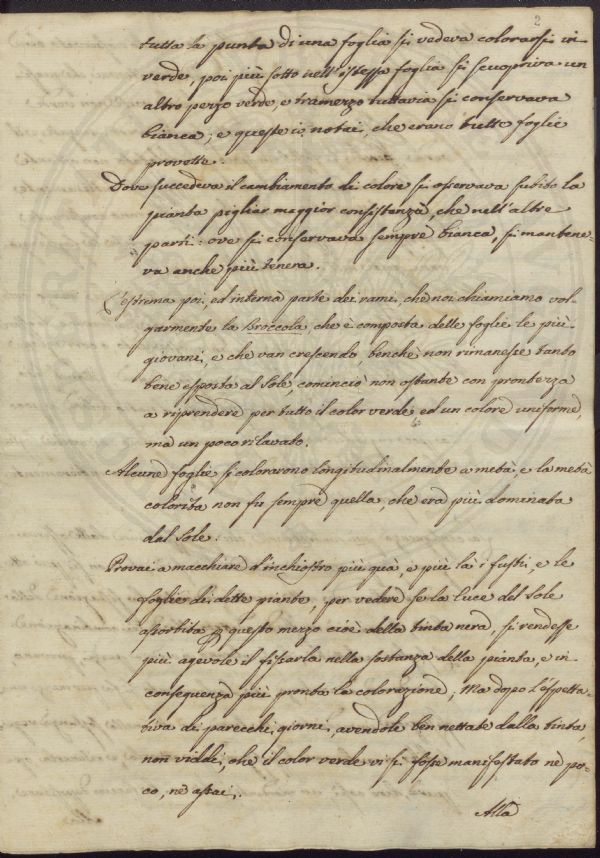 2
tutta la punta di una foglia si vedeva colorarsi in
verde, poi più sotto nell'istessa foglia si scuopriva un
altro pezzo verde, e tramezzo tuttavia si conservava
bianca; e queste io notai, che erano tutte foglie
provette.
Dove succedeva il cambiamento di colore si osservava subito la
pianta pigliar maggior consistanza, che nell'altre
parti: ove si conservava sempre bianca, si mantene-
va anche più tenera.
L'estrema poi, ed interna parte dei rami, che noi chiamiamo vol-
garmente la Broccola, che è composta delle foglie le più
giovani, e che van crescendo, benchè non rimanesse tanto
bene esposta al Sole, cominciò non ostante con prontezza
a riprendere per tutto il color verde ed un colore uniforme,
ma un poco rilavato.
Alcune foglie si colorarono longitudinalmente a metà, e la metà
colorita non fu sempre quella, che era più dominata
dal Sole.
Provai a macchiare d'inchiostro più quà, e più là i fusti, e le
foglie di dette piante, per vedere se la luce del Sole
assorbita p questo mezzo cioè della tinta nera, si rendesse
più agevole il fissarla nella sostanza della pianta, e in
conseguenza più pronta la colorazione; Ma dopo l'espetta-
tiva di parecchi giorni, avendole ben nettate dalla tinta,
non viddi, che il color verde vi si fosse manifestato nè po-
co, nè assai.
Alla